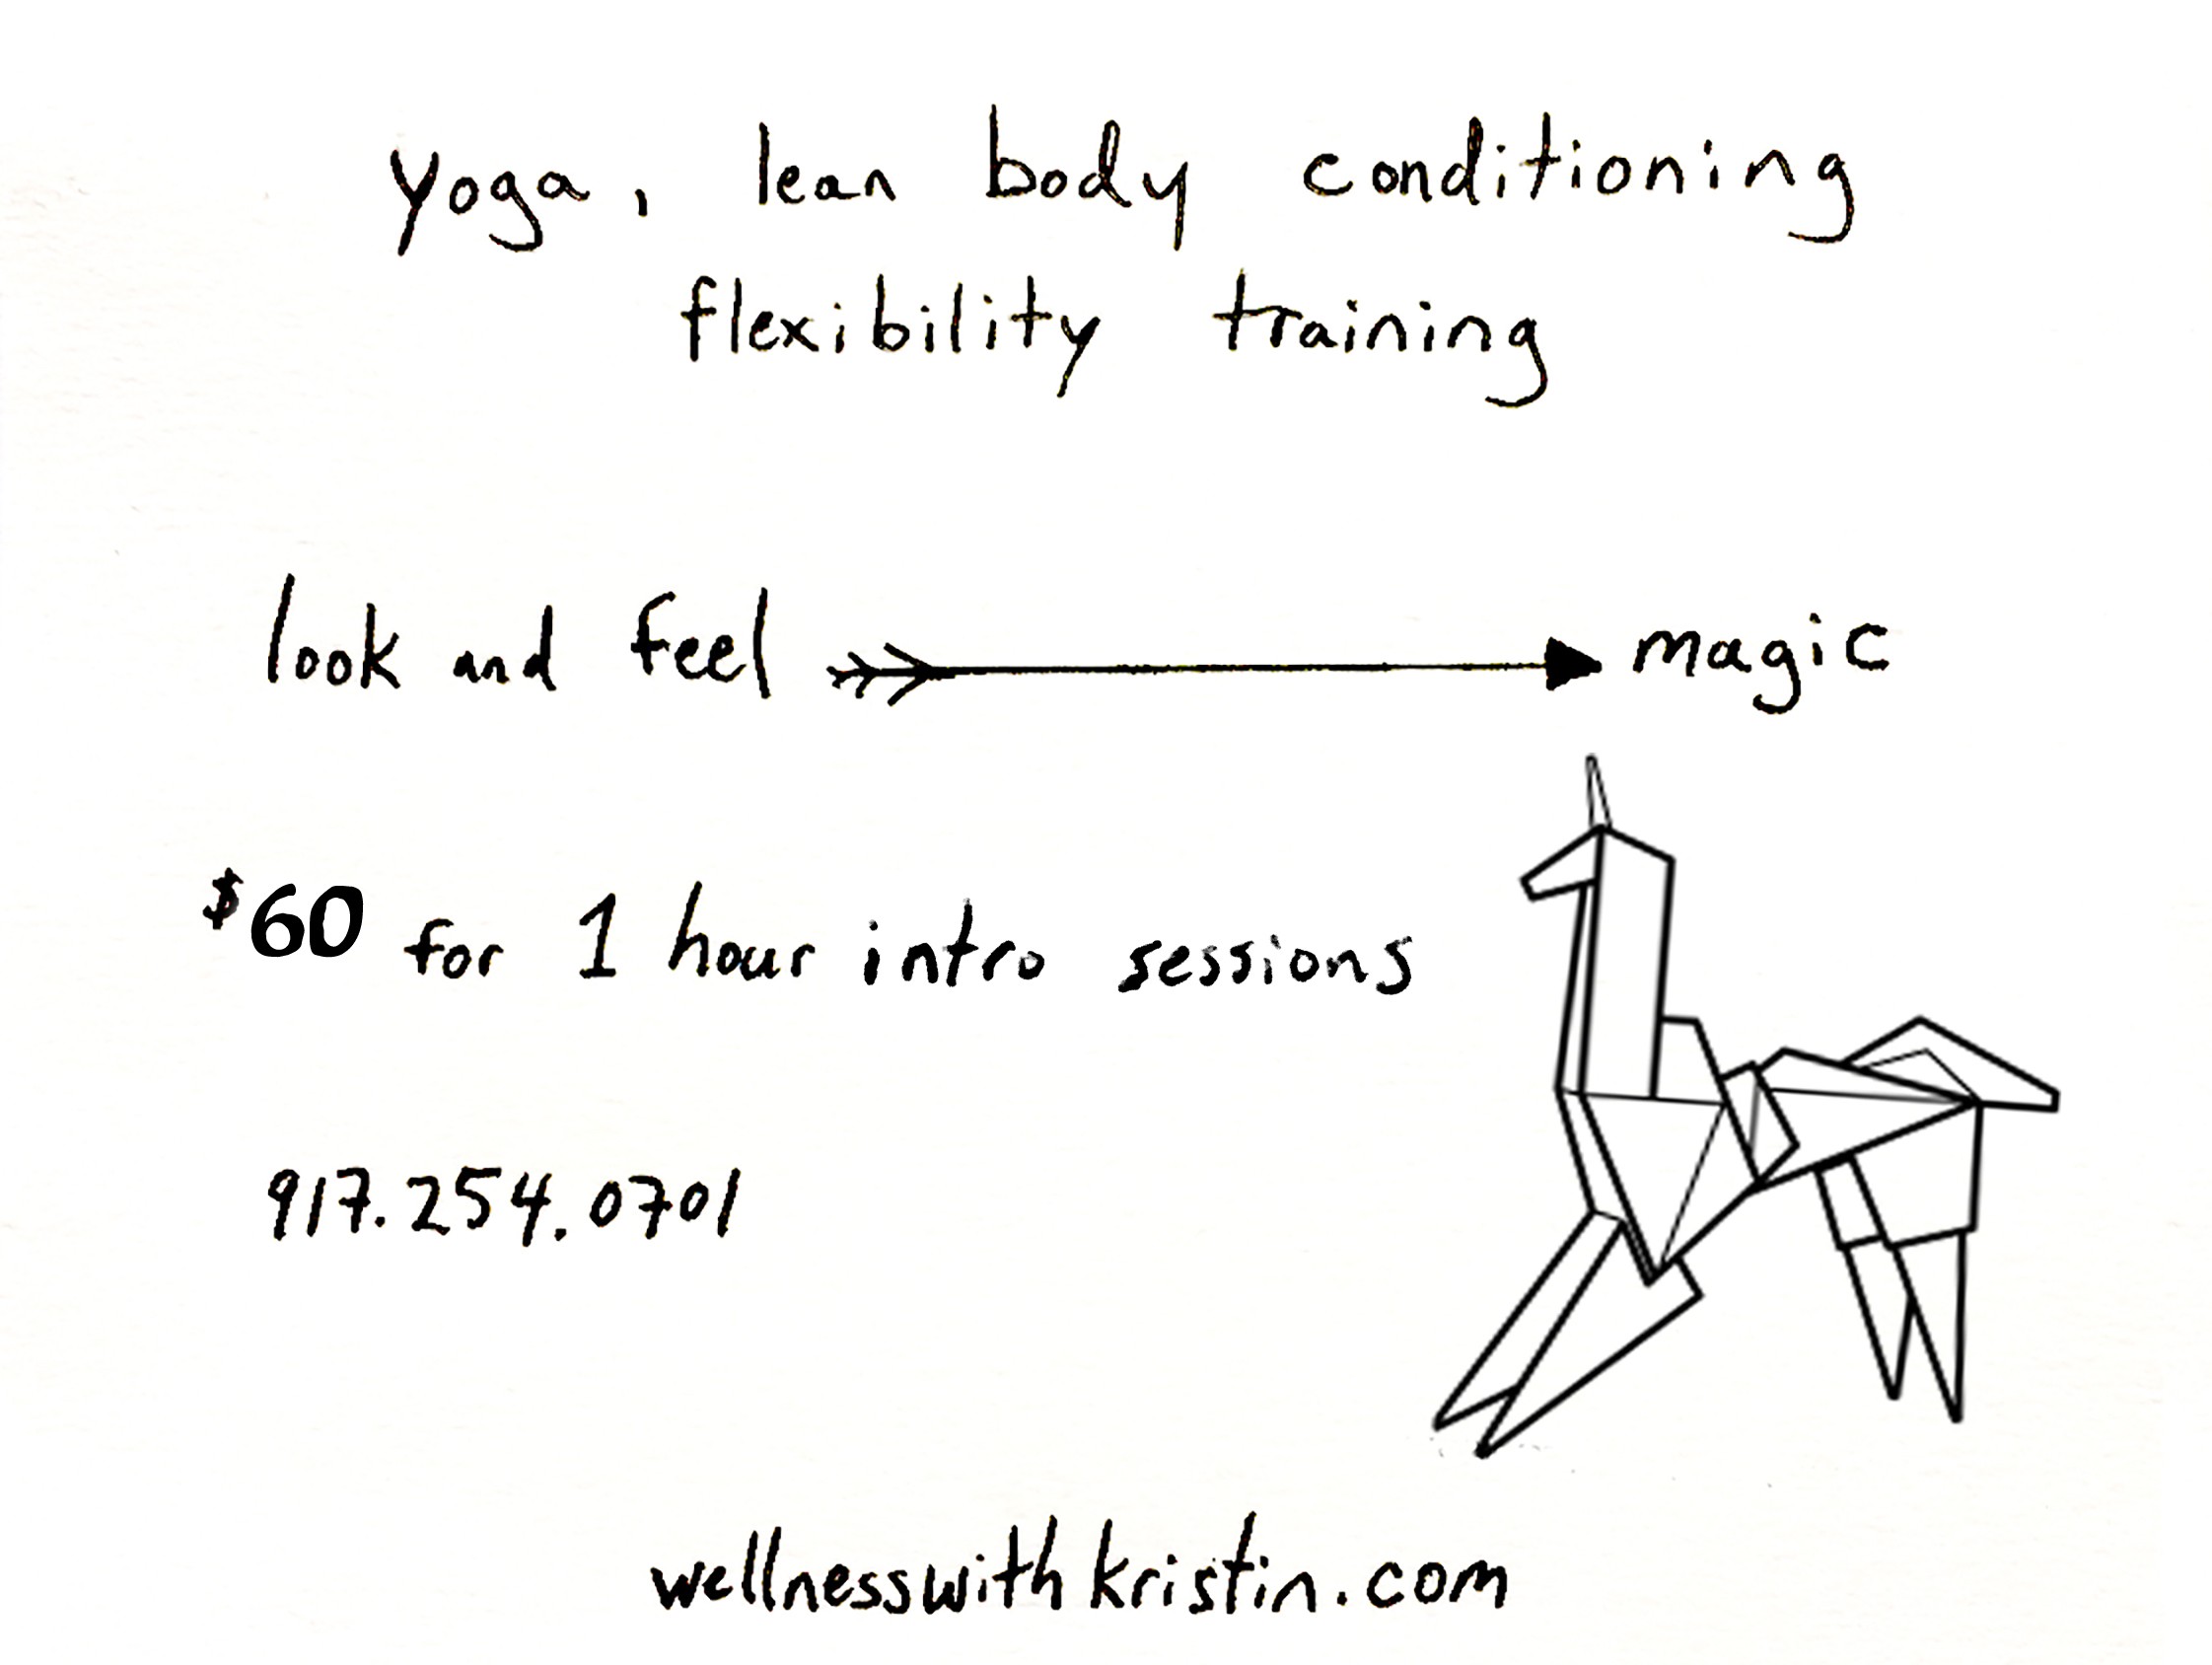 yoga, lean body conditioning
flexibility training
look and feel magic
$60 for 1 hour intro sessions
917.254.0701
wellnesswithkristin.com